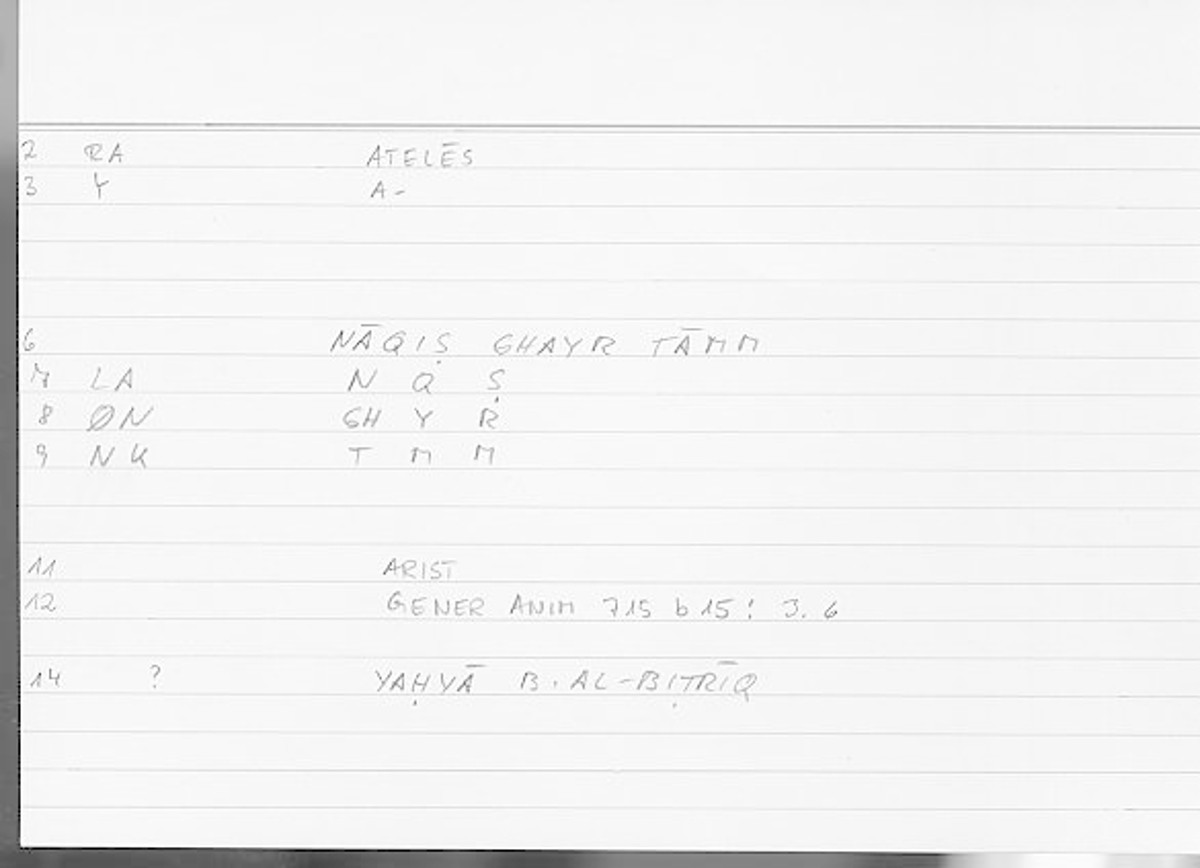 2 RA ATELĒS
3 Y A-
6 NĀQIṢ GHAYR TĀMM
7 LA N Q Ṣ
8 ØN GH Y R
9 NK T M M
11 ARIST
12 GENER ANIM 715 b 15; 3.6
14 ? YAḤYĀ B. AL-BIṬRĪQ